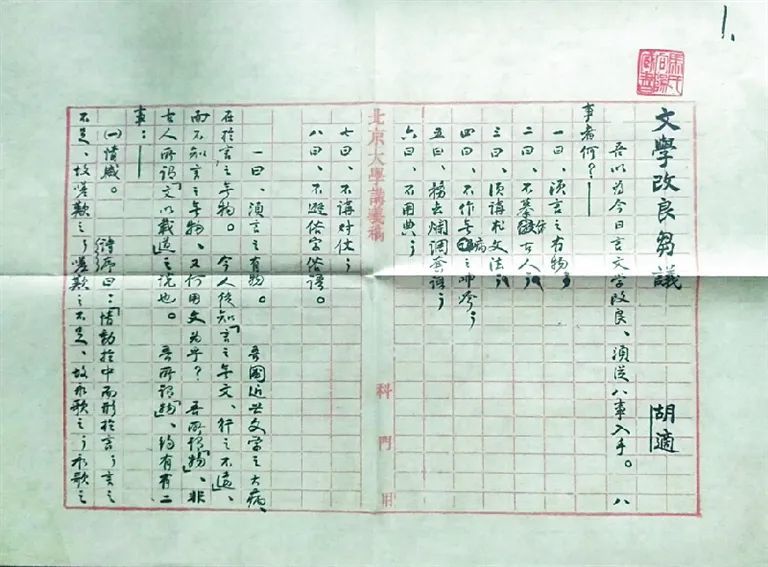 1.
文學改良芻議
胡適
吾以為今日言文学改良、須從八事入手。八
事者何?——
一曰、須言之有物;
二曰、不摹仿古人;
三曰、須講求文法;
四曰、不作無病之呻吟;
五曰、務去爛調套語;
六曰、不用典;
北京大學講義稿
科 門
七曰、不講對仗;
八曰、不避俗字俗語。
一曰、須言之有物。 吾國近世文学之大病、
在於言之無物。今人徒知「言之無文、行之不遠」、
而不知言之無物、又何用文為乎? 吾所謂「物」、非
古人所謂「文以載道」之說也。 吾所謂「物」、約有有二
事:——
(一)情感。 詩序曰:「情動於中而形於言;言之
不足、故嗟歎之;嗟歎之不足、故永歌之;永歌之